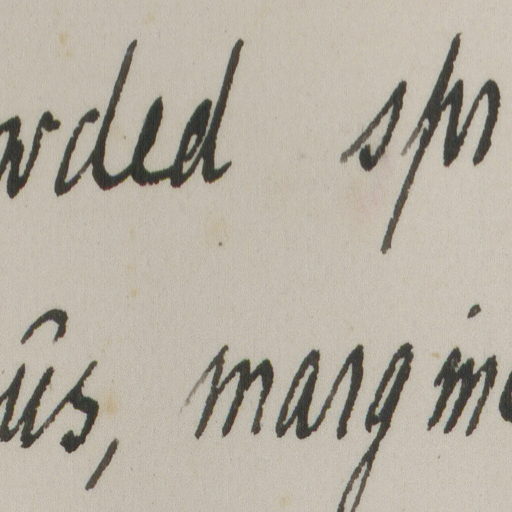 wded spr
ûs, margine